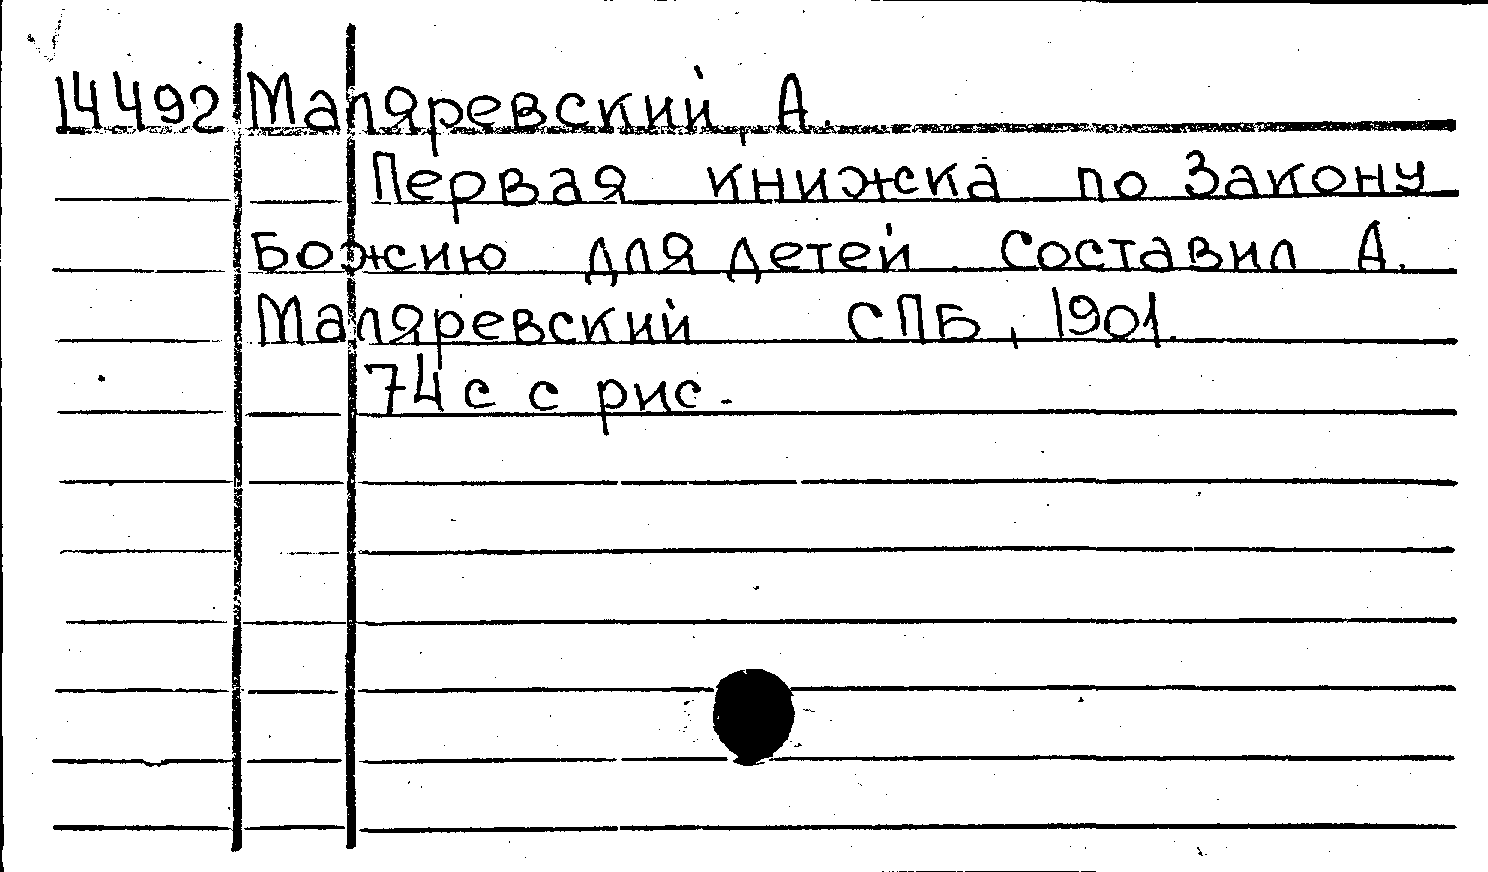 14492 Маляревский, А.
Первая книжка по Закону
Божию для детей. Составил А.
Маляревский СПБ, 1901.
74 с с рис.